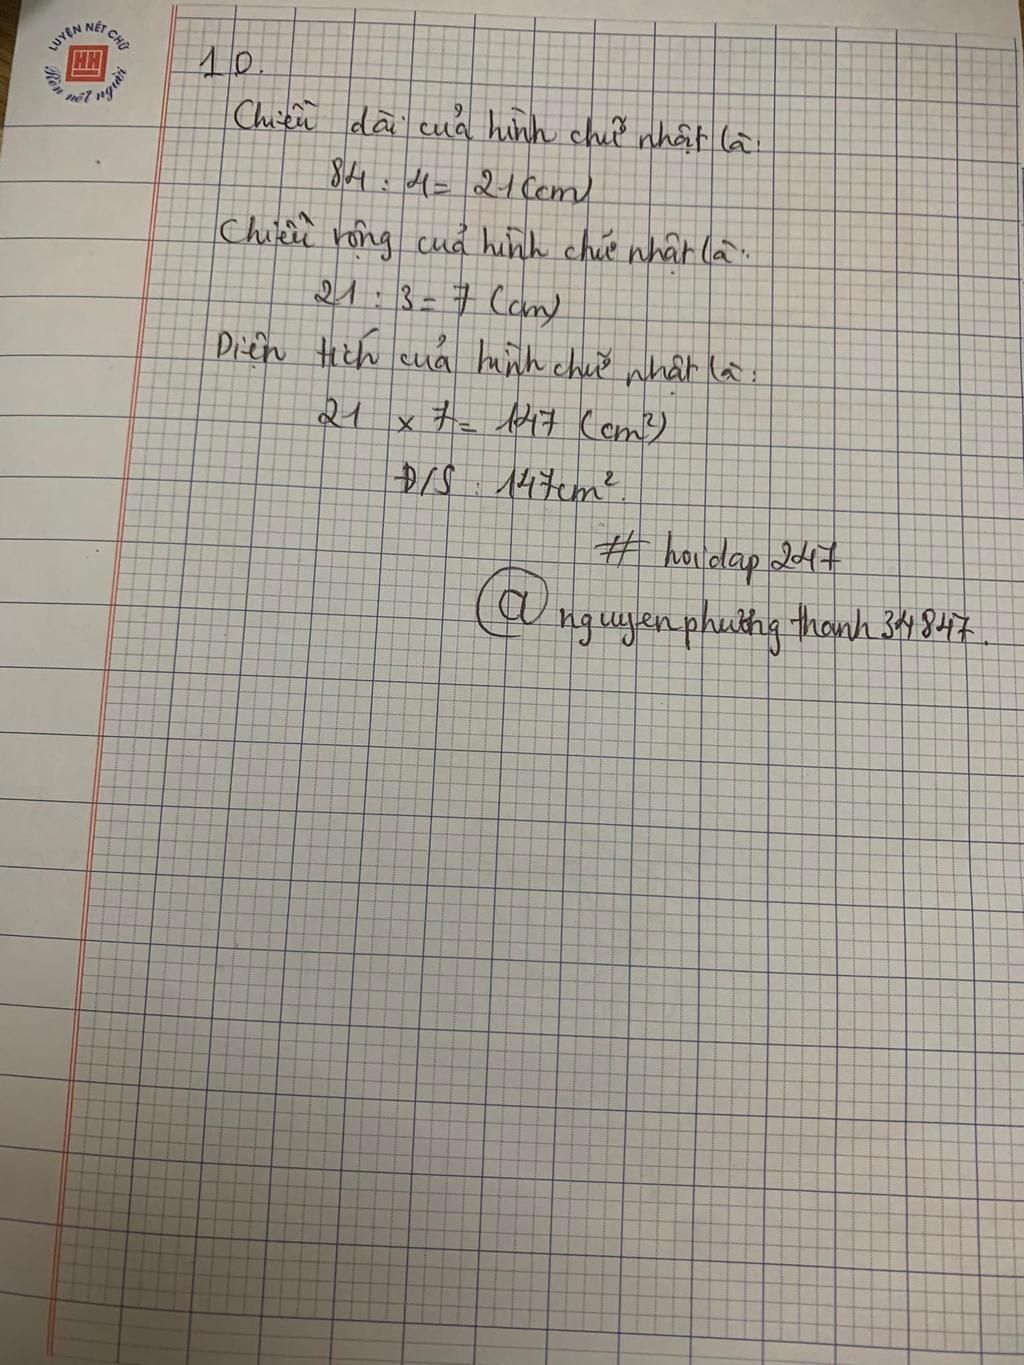 LUYỆN NÉT CHỮ
HH
Rèn nết người
10.
Chiều dài của hình chữ nhật là:
84 : 4 = 21 (cm)
Chiều rộng của hình chữ nhật là:
21 : 3 = 7 (cm)
Diện tích của hình chữ nhật là:
21 x 7 = 147 (cm²)
Đ/S : 147cm².
# hoidap 247
@ nguyenphươngthanh34847.